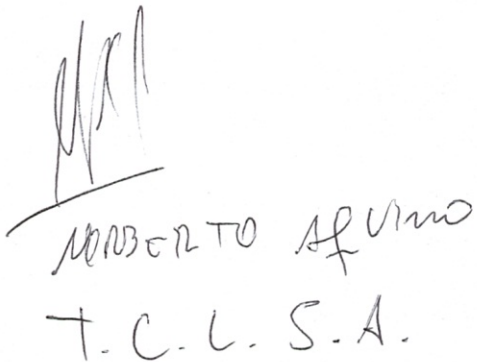 NORBERTO AQUINO
T.C.L.S.A.